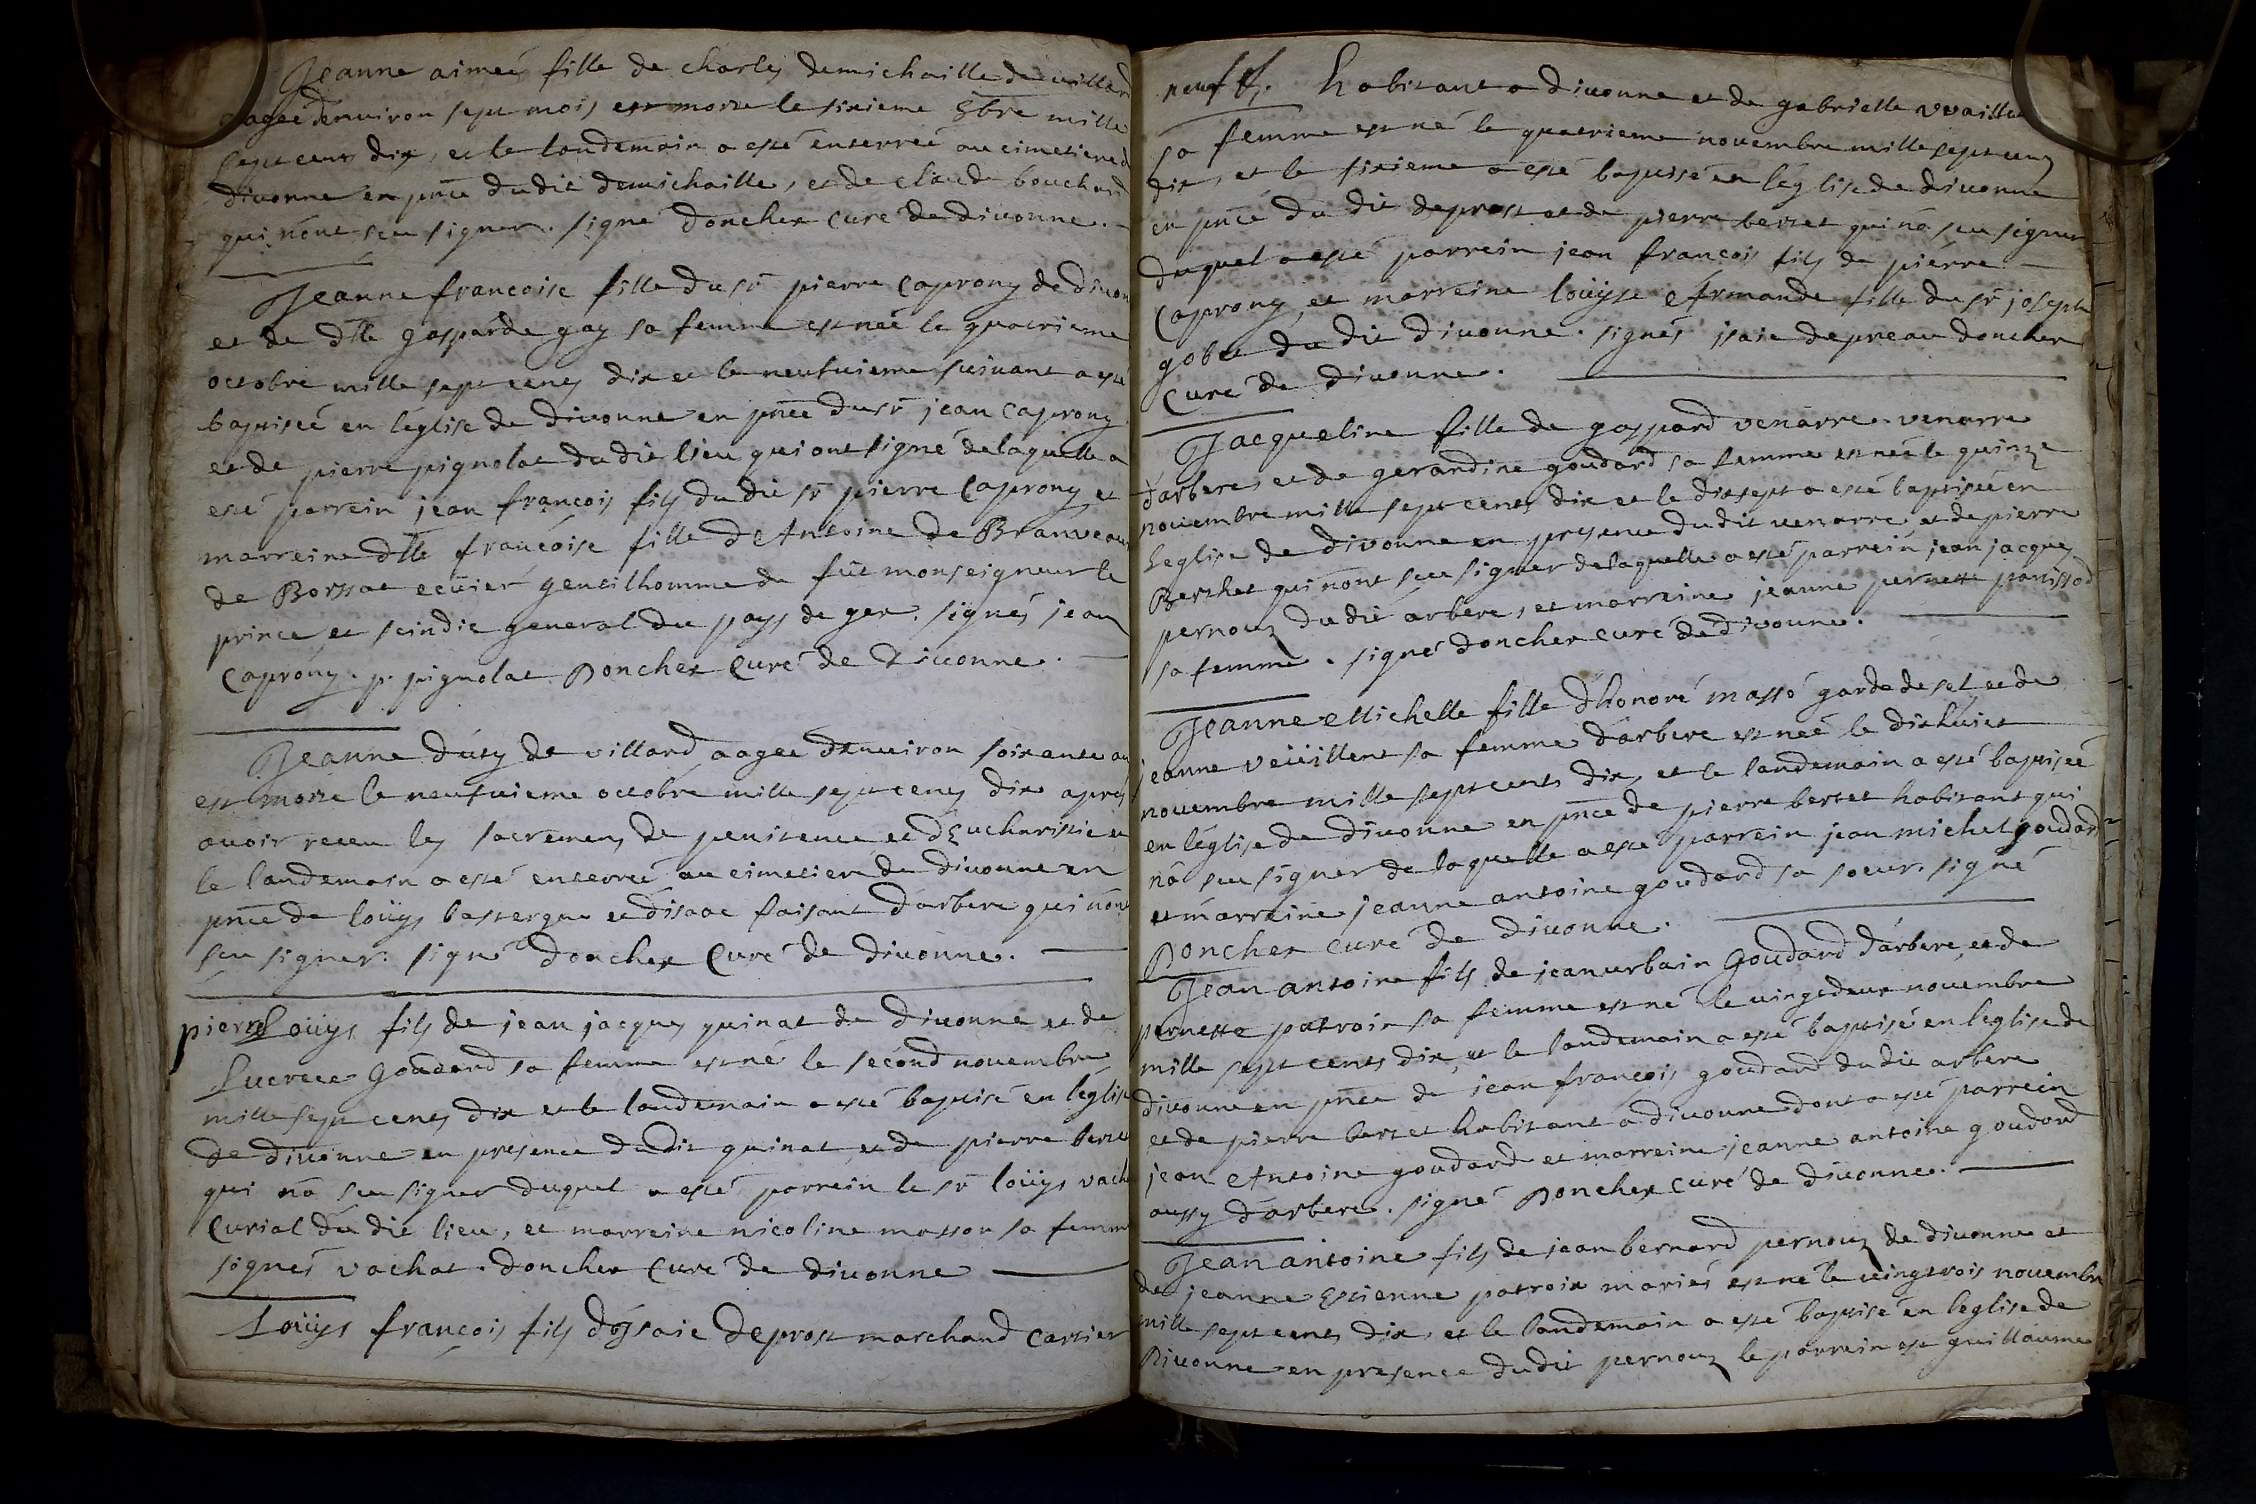 Jeanne aimeé fille de charles demichaille de villard
aagée denuiron sept mois est morte le sixieme 8bre mille
sept cens dix, et le landemain a esté enterreé au cimetiere d
diuonne en pnce dudit demichaille, et de claude bouchard
qui nont sceu signer. signé Doncher Curé de diuonne.
Jeanne francoise fille du sr pierre Caprony de diuon
et de dlle gasparde gay sa femme est neé le quatrieme
octobre mille sept cens dix et le neufuieme suiuant a esté
baptiseé en léglise de diuonne en pnce du sr jean Caprony
et de pierre pignolat dudit lieu qui ont signé de laquelle a
esté parrein jean françois fils dudit sr pierre Caprony et
marreine dlle françoise fille d'Antoine de Branveaux
de Borssat ecüier gentilhomme de füt monseigneur le
prince et scindic general du pays de gex. signés jean
Caprony. p. pignolat Doncher Curé de Diuonne.
Jeanne duty de villard aagee denuiron soixante an
est morte le neufuieme octobre mille sept cens dix apres
auoir receu les sacremens de penitence et dEucharistie et
le landemain a esté enterreé au cimetiere de diuonne en
pnce de loüys lastergue et disaac faisant d'arbere qui nont
sceu signer. signé Doncher Curé de diuonne.
pierre Loüys fils de jean jacques quinat de Diuonne et de
Lucrece Goudard sa femme est né le second nouembre
mille sept cens dix et le landemain a esté baptisé en léglise
de diuonne en presence dudit quinat, et de pierre bertet
qui na sceu signer duquel a esté parrein le sr loüys vach
Curial du dit lieu, et marreine nicoline masson sa femme
signés vachat. doncher Curé de diuonne
Loüys françois fils désaie deprost marchand Cartier
neuf habitant a diuonne et de gabrielle vuaillet
sa femme est né le quatrieme nouembre mille sept cens
dix, et le sixieme a esté baptisé en léglise de diuonne
en pnce du dit deprost et de pierre bertet qui na sceu signer
duquel a esté parrein jean françois fils de pierre
Caprony, et marreine loüyse Armande fille du sr joseph
gobet du dit diuonne. signés jsaie depreau doncher
Curé de diuonne.
Jacqueline fille de gaspard venarre venarre
d'arbere, et de gerandine goudard sa femme est neé le quinze
nouembre mille sept cents dix et le dixsept a esté baptiseé en
leglise de divonne en presence dudit venarre et de pierre
Berthet qui nont sceu signer de laquelle a esté parrein jean jacques
pernouz du dit arbere, et marreine jeanne pernette panissod
sa femme. signé doncher curé de diuonne.
Jeanne Michelle fille d'honoré massó garde de sel et de
jeanne veüillent sa femme d'arbere est neé le dixhuict
nouembre mille sept cents dix, et le landemain a esté baptiseé
en léglise de diuonne en pnce de pierre bertet habitant qui
na sceu signer de laquelle a esté parrein jean michel goudard
et marreine jeanne antoine goudard sa soeur. signé
Doncher curé de diuonne.
Jean antoine fils de jean urbain Goudard d'arbere, et de
pernette patroix sa femme est né le vingtdeux nouembre
mille sept cents dix, et le landemain a esté baptisé en leglise de
diuonne en pnce de jean françois goudard dudit arbere
et de pierre bertet habitant a diuonne dont a esté parrein
jean Antoine goudard et marreine jeanne antoine goudard
aussy d'arbere. signé Doncher Curé de diuonne.
Jean antoine fils de jean bernard pernouz de diuonne et
de jeanne Estienne patroix mariés est né le vingtrois nouembre
mille sept cents dix, et le landemain a esté baptisé en leglise de
Diuonne en presence dudit pernouz le parrein est guillaume